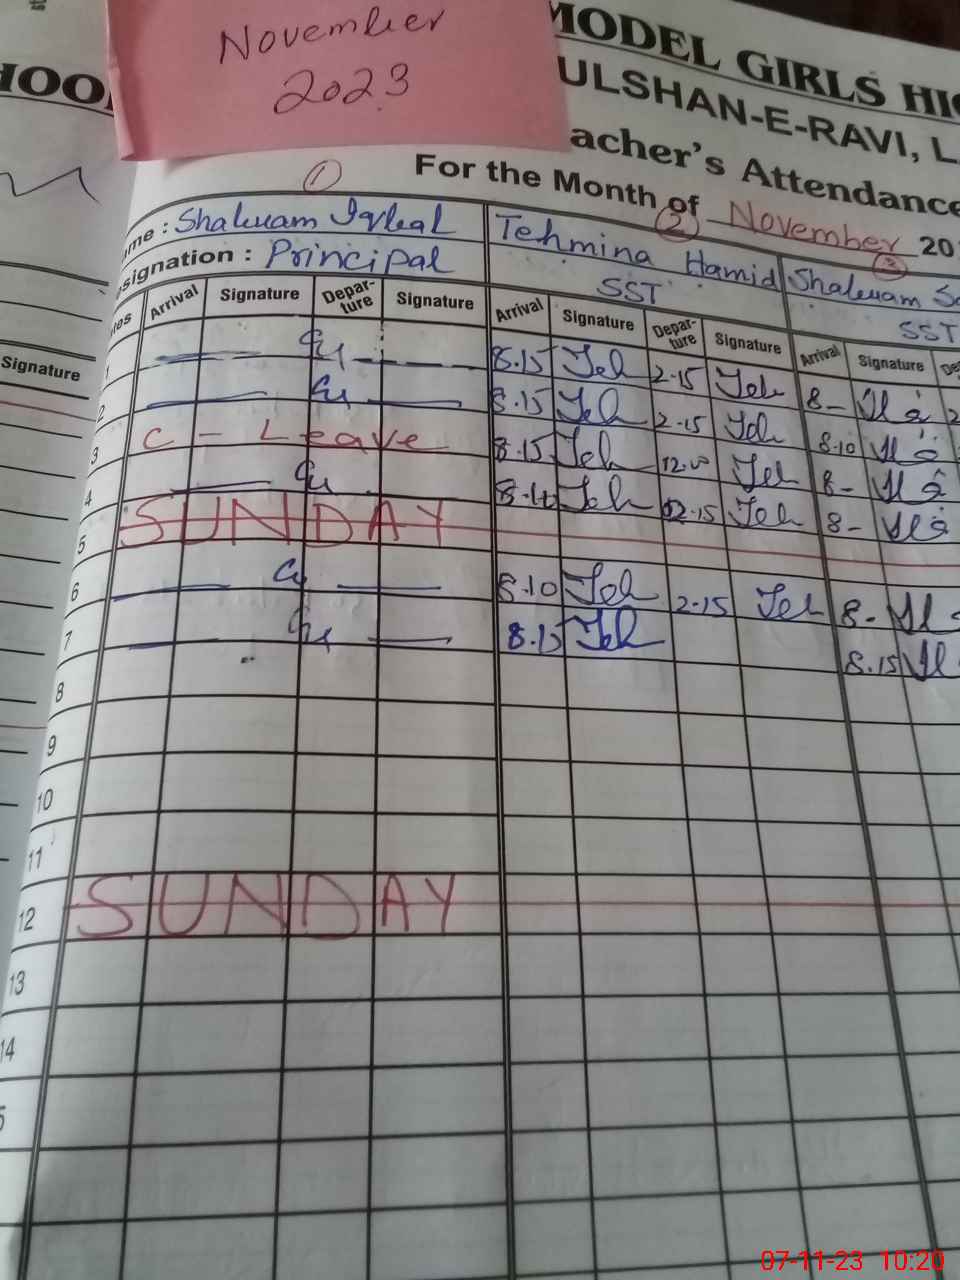 November
2023
HOO
MODEL GIRLS HIG
ULSHAN-E-RAVI, L
acher's Attendance
For the Month of November 20
1 2 3
ame : Shaluam Iqbal Tehmina Hamid Shaluam
esignation : Principal SST SST
tes Arrival Signature Depar-ture Signature Arrival Signature Depar-ture Signature Arrival Signature De
Signature
1 8.15 Teh 2-15 Teh 8-
2 8.15 Teh 2-15 Teh 8-10
3 C - Leave 8.15 Teh 12.00 Teh 8-
4 Teh 02-15 Teh 8-
5 SUNDAY
6 8.10 Teh 2-15 Teh 8-
7 8.15 Teh 8.15
8
9
10
11
12 SUNDAY
13
14
5
07-11-23 10:20